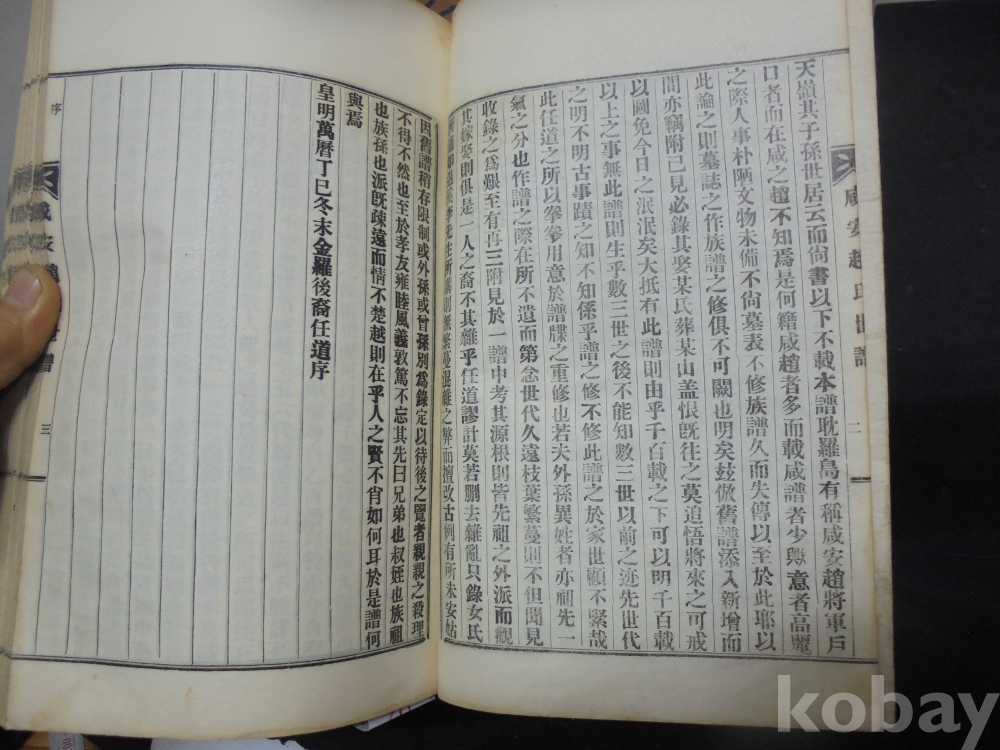 咸安趙氏世譜
二
天嶺其子孫世居云而尙書以下不載本譜耽羅島有稱咸安趙將軍戶
口者而在咸之趙不知焉是何籍咸趙者多而載咸譜者少歟意者高麗
之際人事朴陋文物未備不尙墓表不修族譜久而失傳以至於此耶以
此論之則墓誌之作族譜之修俱不可闕也明矣玆倣舊譜添入新增而
間亦竊附己見必錄其娶某氏葬某山盖恨旣往之莫追悟將來之可戒
以圖免今日之泯泯矣大抵有此譜則由乎千百載之下可以明千百載
以上之事無此譜則生乎數三世之後不能知數三世以前之迹先世代
之明不明古事蹟之知不知係乎譜之修不修此譜之於家世顧不緊哉
此任道之所以拳拳用意於譜牒之重修也若夫外孫異姓者亦祖先一
氣之分也作譜之際在所不遺而第念世代久遠枝葉繁蔓則不但聞見
收錄之爲艱至有再三附見於一譜中考其源根則皆先祖之外派而觀
其嫁娶則俱是一人之裔不其雜乎任道謬計莫若刪去雜亂只錄女氏
先生所 則無繁蔓混雜之弊而擅改古例有所未安姑
因舊譜稍存限制或外孫或曾孫別爲錄定以待後之覽者親親之殺理
不得不然也至於孝友雍睦風義敦篤不忘其先曰兄弟也叔姪也族祖
也族孫也派旣疎遠而情不楚越則在乎人之賢不肖如何耳於是譜何
與焉
皇明萬曆丁巳冬末金羅後裔任道序
序
咸安
譜
三
kobay